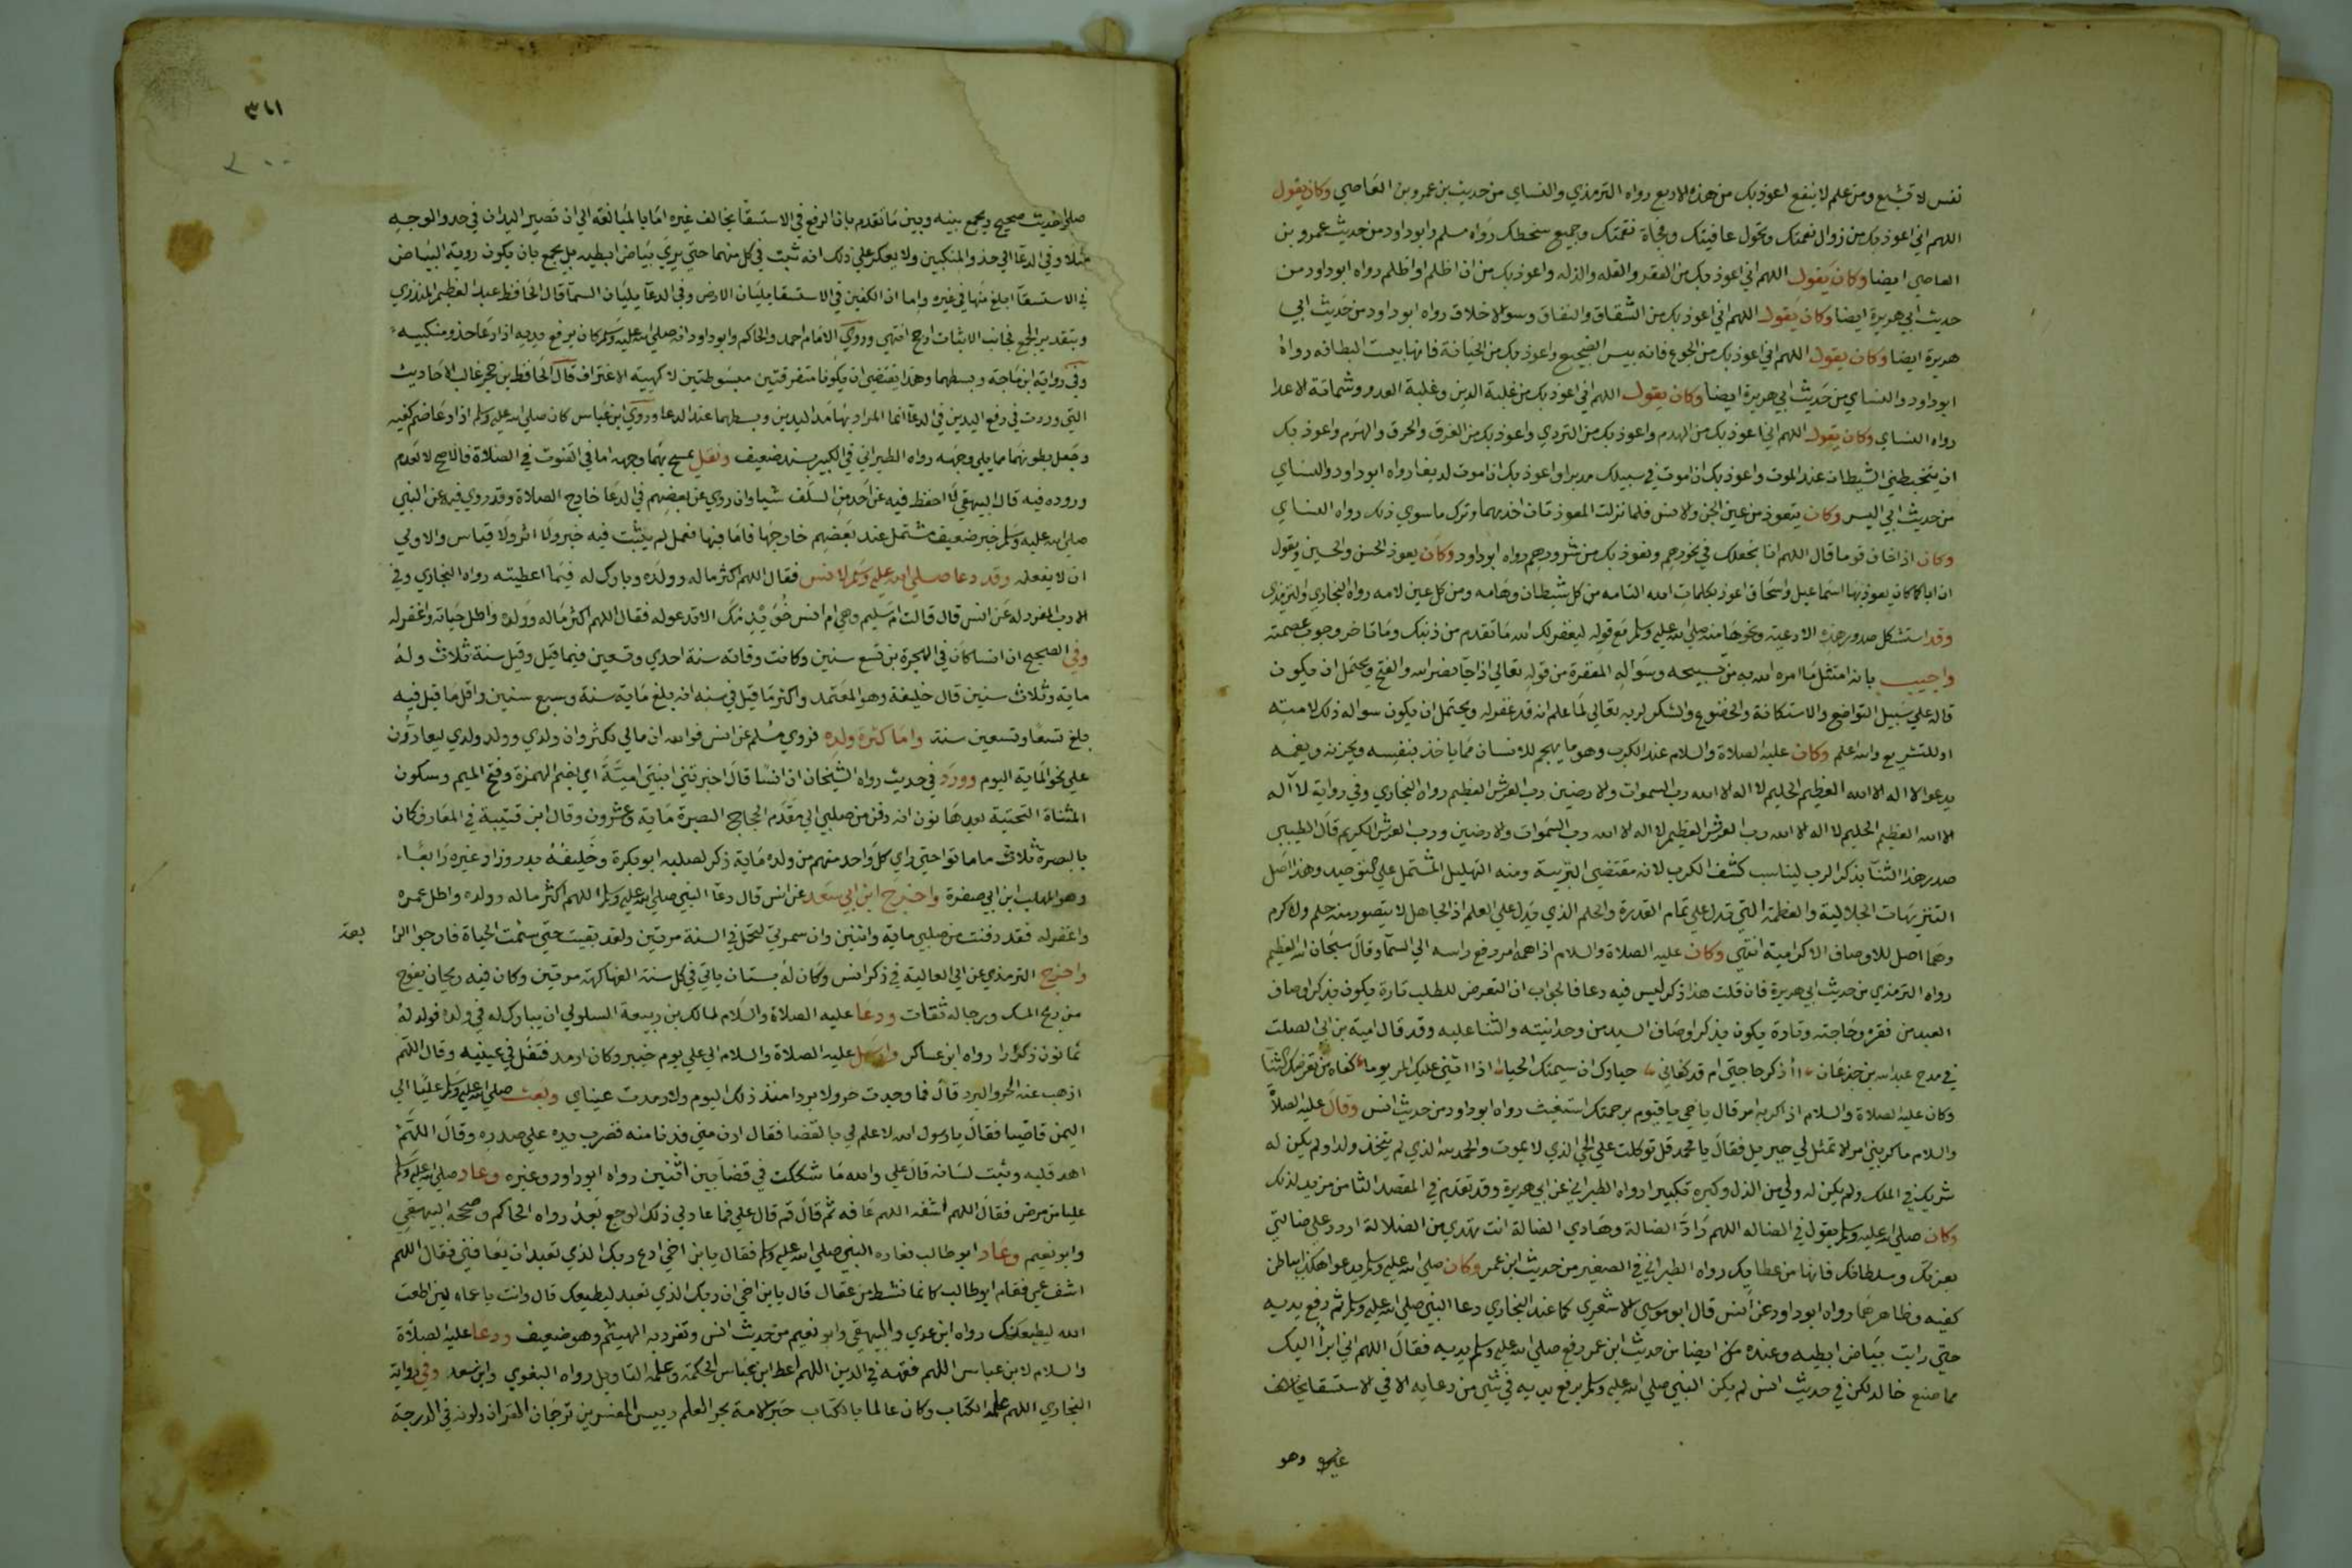 نفس لا تشبع ومن علم لا ينفع اعوذ بك من هذه الاربع رواه الترمذي والنساي من حديث بن عمرو بن العاصي وكان يقول
اللهم اني اعوذ بك من زوال نعمتك وتحول عافيتك وفجاة نقمتك وجميع سخطك رواه مسلم وابو داود من حديث عمرو بن
العاصي ايضا وكان يقول اللهم اني اعوذ بك من الفقر والقله والذله واعوذ بك من ان اظلم او اظلم رواه ابو داود من
حديث ابي هريرة ايضا وكان يقول اللهم اني اعوذ بك من الشقاق والنفاق وسو الاخلاق رواه ابو داود من حديث ابي
هريرة ايضا وكان يقول اللهم اني اعوذ بك من الجوع فانه بيس الضجيع واعوذ بك من الخيانة فانها بيست البطانه رواه
ابو داود والنساي من حديث ابي هريرة ايضا وكان يقول اللهم اني اعوذ بك من غلبة الدين وغلبة العدو وشماتة الاعدا
رواه النساي وكان يقول اللهم اني اعوذ بك من الهدم واعوذ بك من التردي واعوذ بك من الغرق والحرق والهرم واعوذ بك
ان يتخبطني الشيطان عند الموت واعوذ بك ان اموت في سبيلك مدبرا واعوذ بك ان اموت لديغا رواه ابو داود والنساي
من حديث ابي اليسر وكان يتعوذ من عين الجن والانس فلما نزلت المعوذتان اخذ بهما وترك ما سوي ذلك رواه النساي
وكان اذا خاف قوما قال اللهم انا نجعلك في نحورهم ونعوذ بك من شرورهم رواه ابو داود وكان يعوذ الحسن والحسين ويقول
ان اباكما كان يعوذ بها اسماعيل واسحاق اعوذ بكلمات الله التامه من كل شيطان وهامه ومن كل عين لامه رواه البخاري والترمذي
وقد استشكل صدور هذه الادعية ونحوها منه صلي الله عليه وسلم مع قوله ليغفر لك الله ما تقدم من ذنبك وما تاخر ووجوب عصمته
واجيب بانه امتثل ما امره الله به من تسبيحه وسواله المغفرة من قوله تعالي اذا جا نصر الله والفتح ويحتمل ان يكون
قاله علي سبيل التواضع والاستكانة والخضوع والشكر لربه تعالي لما علم انه قد غفر له ويحتمل ان يكون سواله ذلك لامته
او للتشريع والله اعلم وكان عليه الصلاة والسلام عند الكرب وهو ما يهجم للانسان مما ياخذ بنفسه ويحزنه ويغمه
يدعو لا اله الا الله العظيم الحليم لا اله الا الله رب السموات والارضين رب العرش العظيم رواه البخاري وفي رواية لا اله
الا الله العظيم الحليم لا اله الا الله رب العرش العظيم لا اله الا الله رب السموات والارضين ورب العرش الكريم قال الطيبي
صدر هذا الثنا بذكر الرب ليناسب كشف الكرب لانه مقتضي التربية ومنه التهليل المشتمل علي التوحيد وهذا اصل
التنزيهات الجلالية والعظمة التي تدل علي تمام القدرة والحلم الذي يدل علي العلم اذ الجاهل لا يتصور منه حلم ولا كرم
وهما اصل للاوصاف الاكرامية انتهي وكان عليه الصلاة والسلام اذا اهمه امر رفع راسه الي السما وقال سبحان الله العظيم
رواه الترمذي من حديث ابي هريرة فان قلت هذا ذكر ليس فيه دعا فالجواب ان التعرض للطلب تارة يكون بذكر اوصاف
العبد من فقره وحاجته وتارة يكون بذكر اوصاف السيد من وحدانيته والثنا عليه وقد قال امية بن ابي الصلت
في مدح عبد الله بن جدعان أأذكر حاجتي ام قد كفاني حياوك ان سيمتك الحيا اذا اثني عليك المر يوما كفاه من تعرضك الثنا
وكان عليه الصلاة والسلام اذا كربه امر قال يا حي يا قيوم برحمتك استغيث رواه ابو داود من حديث انس وقال عليه الصلاة
والسلام ما كربني امر الا تمثل لي جبريل فقال يا محمد قل توكلت علي الحي الذي لا يموت والحمد لله الذي لم يتخذ ولدا ولم يكن له
شريك في الملك ولم يكن له ولي من الذل وكبره تكبيرا رواه الطبراني عن ابي هريرة وقد تقدم في المقصد الثامن مزيد لذلك
وكان صلي الله عليه وسلم يقول في الضاله اللهم راد الضالة وهادي الضالة انت تهدي من الضلالة اردد علي ضالتي
بعزتك وسلطانك فانها من عطايك رواه الطبراني في الصغير من حديث ابن عمر وكان صلي الله عليه وسلم يدعو هكذا بباطن
كفيه وظاهرهما رواه ابو داود عن انس قال ابو موسي الاشعري كما عند البخاري دعا النبي صلي الله عليه وسلم ثم رفع يديه
حتي رايت بياض ابطيه وعنده ايضا من حديث ابن عمر رفع صلي الله عليه وسلم يديه فقال اللهم اني ابرا اليك
مما صنع خالد لكن في حديث انس لم يكن النبي صلي الله عليه وسلم يرفع يديه في شي من دعايه الا في الاستسقا
وهو
٣٦١
٢٠٠
حديث صحيح ويجمع بينه وبين ما تقدم بان الرفع في الاستسقا يخالف غيره اما بالمبالغة الي ان تصير اليدان في حذو الوجه
مثلا وفي الدعا الي حذو المنكبين ولا يعكر علي ذلك انه ثبت في كل منهما حتي يري بياض ابطيه بل يجمع بان يكون روية البياض
في الاستسقا ابلغ منها في غيره واما ان الكفين في الاستسقا يليان الارض وفي الدعا يليان السما قال الحافظ عبد العظيم المنذري
وبتقدير الجمع فجانب الاثبات ارجح انتهي وروي الامام احمد والحاكم وابو داود انه صلي الله عليه وسلم كان يرفع يديه اذا دعا حذو منكبيه
وفي رواية ابن ماجة وبسطهما وهذا يقتضي ان يكونا متفرقتين مبسوطتين لا كهيئة الاغتراف قال الحافظ بن حجر غالب الاحاديث
التي وردت في رفع اليدين في الدعا انما المراد بها مد اليدين وبسطهما عند الدعا وروي ابن عباس كان صلي الله عليه وسلم اذا دعا ضم كفيه
وجعل بطونهما مما يلي وجهه رواه الطبراني في الكبير بسند ضعيف وهل يمسح بهما وجهه اما في القنوت في الصلاة فالاصح لا لعدم
وروده فيه قال البيهقي لا احفظ فيه عن احد من السلف شيا وان روي عن بعضهم في الدعا خارج الصلاة وقد روي فيه عن النبي
صلي الله عليه وسلم خبر ضعيف مستعمل عند بعضهم خارجها فاما فيها فعمل لم يثبت فيه خبر ولا اثر ولا قياس والاولي
ان لا يفعله وقد دعا صلي الله عليه وسلم لانس فقال اللهم اكثر ماله وولده وبارك له فيما اعطيته رواه البخاري وفي
الادب المفرد له عن انس قال قالت ام سليم وهي ام انس خويدمك الا تدعو له فقال اللهم اكثر ماله وولده واطل حياته واغفر له
وفي الصحيح ان انسا كان في الهجرة بن تسع سنين وكانت وفاته سنة احدي وتسعين فيما قيل وقيل سنة ثلاث وله
ماية وثلاث سنين قال خليفة وهو المعتمد واكثر ما قيل في سنه انه بلغ ماية سنة وسبع سنين واقل ما قيل فيه
بلغ تسعا وتسعين سنة واما كثرة ولده فروي مسلم عن انس فوالله ان مالي لكثير وان ولدي وولد ولدي ليعادون
علي نحو الماية اليوم وورد في حديث رواه الشيخان ان انسا قال اخبرتني ابنتي امينة اي بضم الهمزة وفتح الميم وسكون
المثناة التحتية بعدها نون انه دفن من صلبي الي مقدم الحجاج البصرة ماية وعشرون وقال ابن قتيبة في المعارف كان
بالبصرة ثلاثة ما ماتوا حتي راي كل واحد منهم من ولده ماية ذكر لصلبه ابو بكرة وخليفة بدر وزاد غيره رابعا
وهو المهلب ابن ابي صفرة واخرج ابن ابي سعد عن انس قال دعا النبي صلي الله عليه وسلم اللهم اكثر ماله وولده واطل عمره
واغفر له فقد دفنت من صلبي ماية واثنين وان ثمرتي لتحمل في السنة مرتين ولقد بقيت حتي سئمت الحياة فارجوا الرابعة
واخرج الترمذي عن ابي العالية في ذكر انس وكان له بستان ياتي في كل سنة الفاكهة مرتين وكان فيه ريحان يفوح
منه ريح المسك ورجاله ثقات ودعا عليه الصلاة والسلام لمالك بن ربيعة السلولي ان يبارك له في ولده فولد له
ثمانون ذكرا رواه ابن عساكر وارسل عليه الصلاة والسلام الي علي يوم خيبر وكان ارمد فتفل في عينيه وقال اللهم
اذهب عنه الحر والبرد قال فما وجدت حرا ولا بردا منذ ذلك اليوم ولا رمدت عيناي وبعث صلي الله عليه وسلم عليا الي
اليمن قاضيا فقال يا رسول الله لا علم لي بالقضا فقال ادن مني فدنا منه فضرب يده علي صدره وقال اللهم
اهد قلبه وثبت لسانه قال علي والله ما شككت في قضا بين اثنين رواه ابو داود وغيره وعاد صلي الله عليه وسلم
عليا من مرض فقال اللهم اشفه اللهم عافه ثم قال قم قال علي فما عاد لي ذلك الوجع بعد رواه الحاكم وصححه البيهقي
وابو نعيم وعاد ابو طالب فعاده النبي صلي الله عليه وسلم فقال يا بن اخي ادع ربك الذي تعبد ان يعافيني فقال اللهم
اشف عمي فقام ابو طالب كانما نشط من عقال قال يا بن اخي ان ربك الذي تعبد ليطيعك قال وانت يا عماه لين اطعت
الله ليطيعنك رواه ابن عدي والبيهقي وابو نعيم من حديث انس وتفرد به الهيثم وهو ضعيف ودعا عليه الصلاة
والسلام لابن عباس اللهم فقهه في الدين اللهم اعط ابن عباس الحكمة وعلمه التاويل رواه البغوي وابن سعد وفي رواية
البخاري اللهم علمه الكتاب وكان عالما بالكتاب حبر الامة بحر العلم رييس المفسرين ترجمان القران ولونه في الدرجة